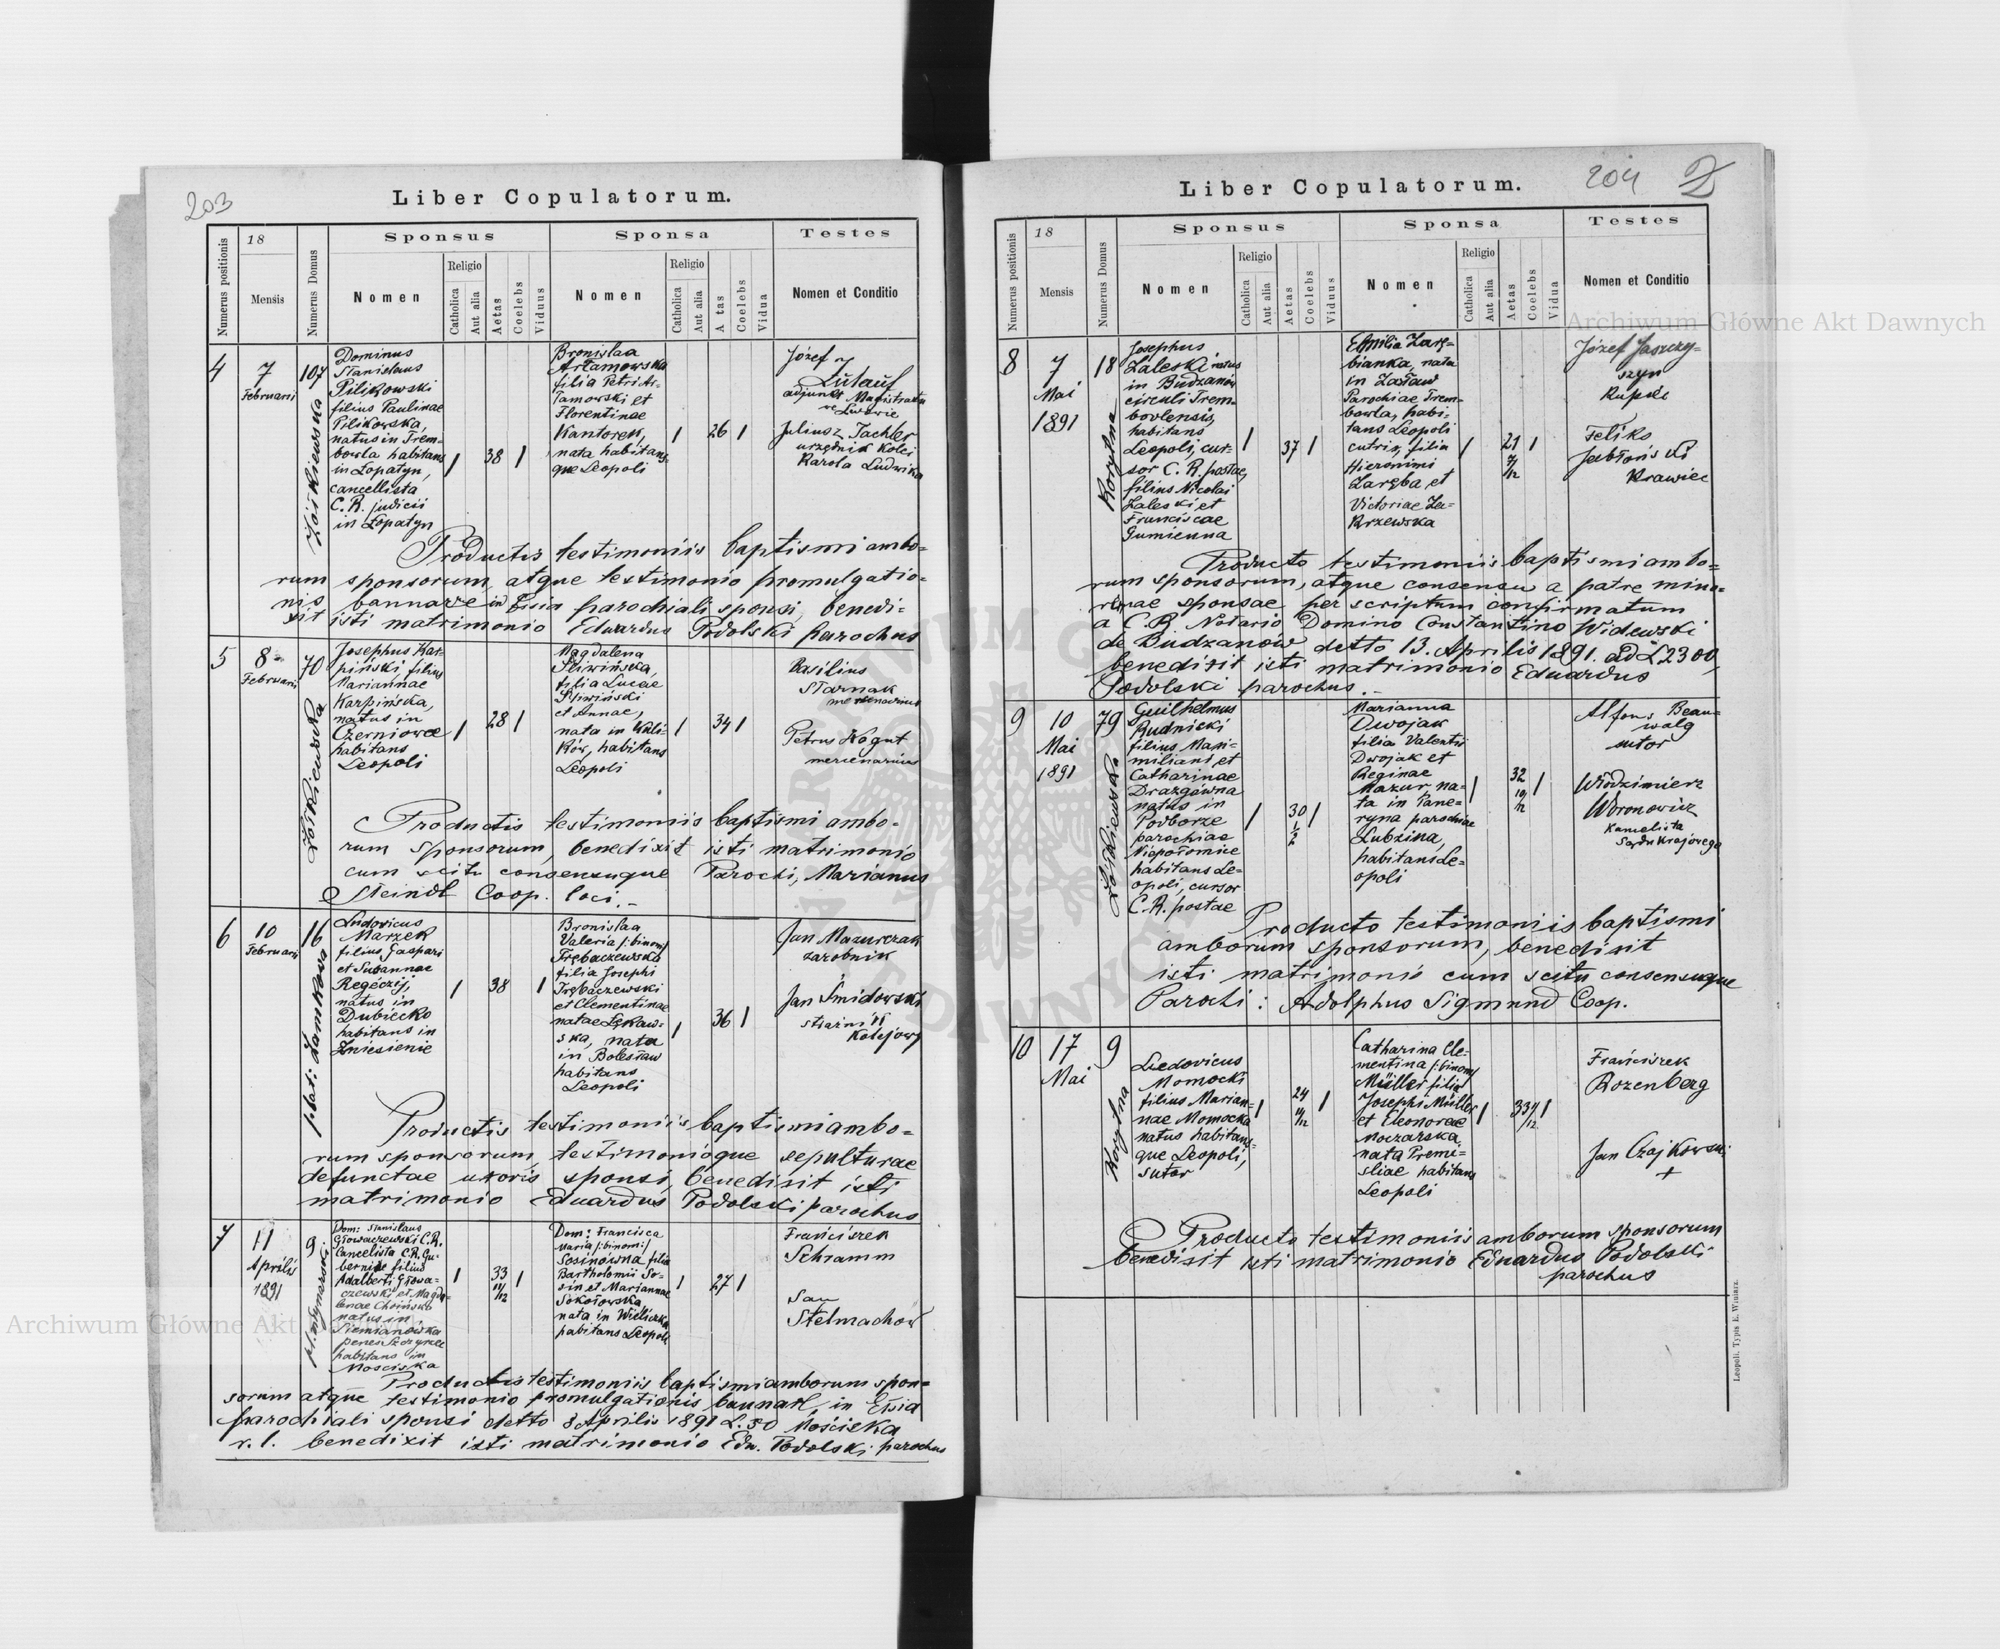 203
Liber Copulatorum.
Numerus positionis
18
Mensis
Numerus Domus
Sponsus
Nomen
Religio
Catholica
Aut alia
Aetas
Coelebs
Viduus
Sponsa
Nomen
Religio
Catholica
Aut alia
A tas
Coelebs
Vidua
Testes
Nomen et Conditio
4
7
Februarii
107
Żółkiewska
Dominus
Stanislaus
Pilikowski
filius Paulinae
Pilikowska,
natus in Trem-
bowla habitans
in Łopatyn,
cancellista
C. R. judicii
in Łopatyn
1
38
1
Bronislaa
Artamowska
filia Petri Ar-
tamowski et
Florentinae
Kantorek,
nata habitans-
que Leopoli
1
26
1
Józef
adjunkt Magistratu
we Lwowie
Juliusz Tachler
urzędnik Kolei
Karola Ludwika
Productis testimoniis baptismi ambo-
rum sponsorum, atque testimonio promulgatio-
nis bannorum in Eccsia parochiali sponsi, benedi-
xit isti matrimonio Eduardus Podolski parochus
5
8
Februarii
70
Żółkiewska
Josephus Kar-
piński, filius
Mariannae
Karpińska,
natus in
Czerniowce
habitans
Leopoli
1
28
1
Magdalena
Śliwińska,
filia Lucae
Śliwiński
et Annae,
nata in Kuli-
ków, habitans
Leopoli
1
34
1
Basilius
Starnak
mercenarius
Petrus Kogut
mercenarius
Productis testimoniis baptismi ambo-
rum sponsorum, benedixit isti matrimonio
cum scitu consensuque Parochi, Marianus
Steindl Coop. loci.-
6
10
Februarii
16
plat: Zamkowa
Ludovicus
Marzek
filius Gaspari
et Susannae
Regeczij,
natus in
Dubiecko
habitans in
Zniesienie
1
38
1
Bronislaa
Valeria /:binom/
Trębaczewska
filia Josephi
Trębaczewski
et Clementinae
natae Łękaw-
ska, nata
in Bolesław
habitans
Leopoli
1
36
1
Jan Mazurczak
zarobnik
Jan Śmidowski
strażnik
Kolejowy
Productis testimoniis baptismi ambo-
rum sponsorum, testimonioque sepulturae
defunctae uxoris sponsi, benedixit isti
matrimonio Eduardus Podolski parochus
7
11
Aprilis
1891
9
pl. Młynarska
Dom: Stanislaus
Głowaczewski C. R.
Cancelista C. R. Gu-
bernii filius
Adalberti Głowa-
czewski et Magda-
lenae Choińska
natus in
Siemianówka
penes Szczyrzec
habitans in
Mościska
1
33
11/12
1
Dom: Francisca
Maria /:binom:/
Sosinówna filia
Bartholomii So-
sin et Mariannae
Sokołowska
nata in Wieliczka
habitans Leopoli
1
27
1
Franciszek
Schramm
Jan
Stelmachów
Productis testimoniis baptismi amborum spon-
sorum atque testimonio promulgationis bannorum in Eccsia
parochiali sponsi detto 8 Aprilis 1891 L. 50 Mościska
r. l. benedixit isti matrimonio Edw. Podolski parochus
204
Liber Copulatorum.
Numerus positionis
18
Mensis
Numerus Domus
Sponsus
Nomen
Religio
Catholica
Aut alia
Aetas
Coelebs
Viduus
Sponsa
Nomen
Religio
Catholica
Aut alia
Aetas
Coelebs
Vidua
Testes
Nomen et Conditio
8
7
Mai
1891
18
Korytna
Josephus
Zaleski natus
in Budzanów
circuli Trem-
bovlensis,
habitans
Leopoli, cur-
sor C. R. postae,
filius Nicolai
Zaleski et
Franciscae
Gumienna
1
37
1
Emilia Zarę-
bianka, nata
in Zasław
Parochiae Trem-
bowla, habi-
tans Leopoli
cutrix, filia
Hieronimi
Zaręba et
Victoriae Za-
krzewska
1
21
7/12
1
Józef Jaszczy-
szyn
Kupiec
Feliks
Jabłoński
Krawiec
Producto testimoniis baptismi ambo-
rum sponsorum, atque consensu a patre mino-
rennae sponsae per scriptum confirmatum
a C. R. Notario Domino Constantino Widewski
de Budzanów detto 13. Aprilis 1891. ad L 2300,
benedixit isti matrimonio Eduardus
Podolski parochus.-
9
10
Mai
1891
79
Żółkiewska
Guilhelmus
Rudnicki
filius Maxi-
miliani et
Catharinae
Drazgówna
natus in
Podborze
parochiae
Niepołomice
habitans Le-
opoli, cursor
C. R. postae
1
30
1/2
1
Marianna
Dwojak
filia Valentii
Dwojak et
Reginae
Mazur, na-
ta in Pane-
ryna parochiae
Lubzina,
habitans Le-
opoli
1
32
10/12
1
Alfons Beau-
walg
sutor
Włodzimierz
Woronowicz
Kancelista
Sądu Krajowego
Producto testimoniis baptismi
amborum sponsorum, benedixit
isti matrimonio cum scitu consensuque
Parochi: Adolphus Sigmund Coop.
10
17
Mai
9
Korytna
Ludovicus
Momocki
filius Marian-
nae Momocka
natus habitans-
que Leopoli,
sutor
1
24
11/12
1
Catharina Cle-
mentina /:binom/
Müller filia
Josephi Müller
et Eleonorae
Moczarska
nata Premi-
sliae habitans
Leopoli
1
33
1/12
1
Franciszek
Rozenberg
Jan Czajkowski
+
Producto testimoniis amborum sponsorum
benedixit isti matrimonio Eduardus Podolski
parochus
Leopoli. Typis E. Winiarz.
Archiwum Główne Akt Dawnych
Archiwum Główne Akt Dawnych
ARCHIWUM GŁÓWNE AKT DAWNYCH